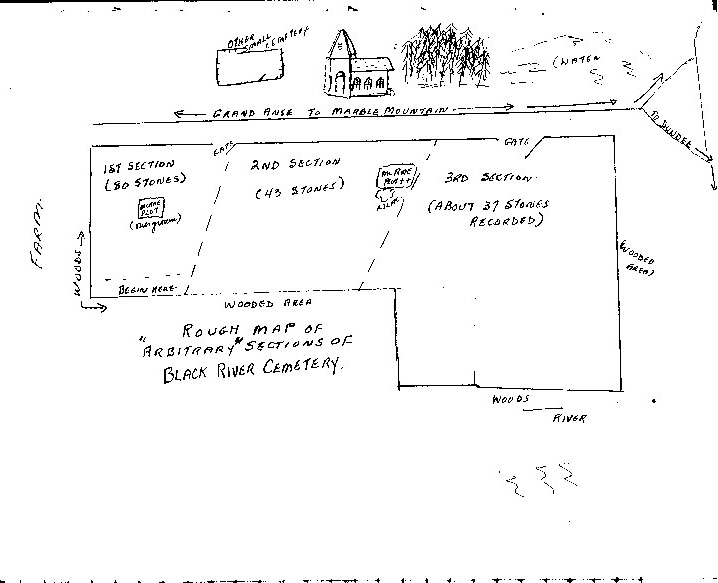 OTHER
SMALL CEMETERY
(WATER
GRAND ANSE TO MARBLE MOUNTAIN
TO DUNDEE
GATE
GATE
1ST SECTION
(80 STONES)
PLOT
(Overgrown)
2ND SECTION
(43 STONES)
LILAC
3RD SECTION
(ABOUT 37 STONES
RECORDED)
FARM
WOODS
BEGIN HERE
WOODED AREA
(WOODED
AREA)
ROUGH MAP OF
"ARBITRARY" SECTIONS OF
BLACK RIVER CEMETERY.
WOODS
RIVER